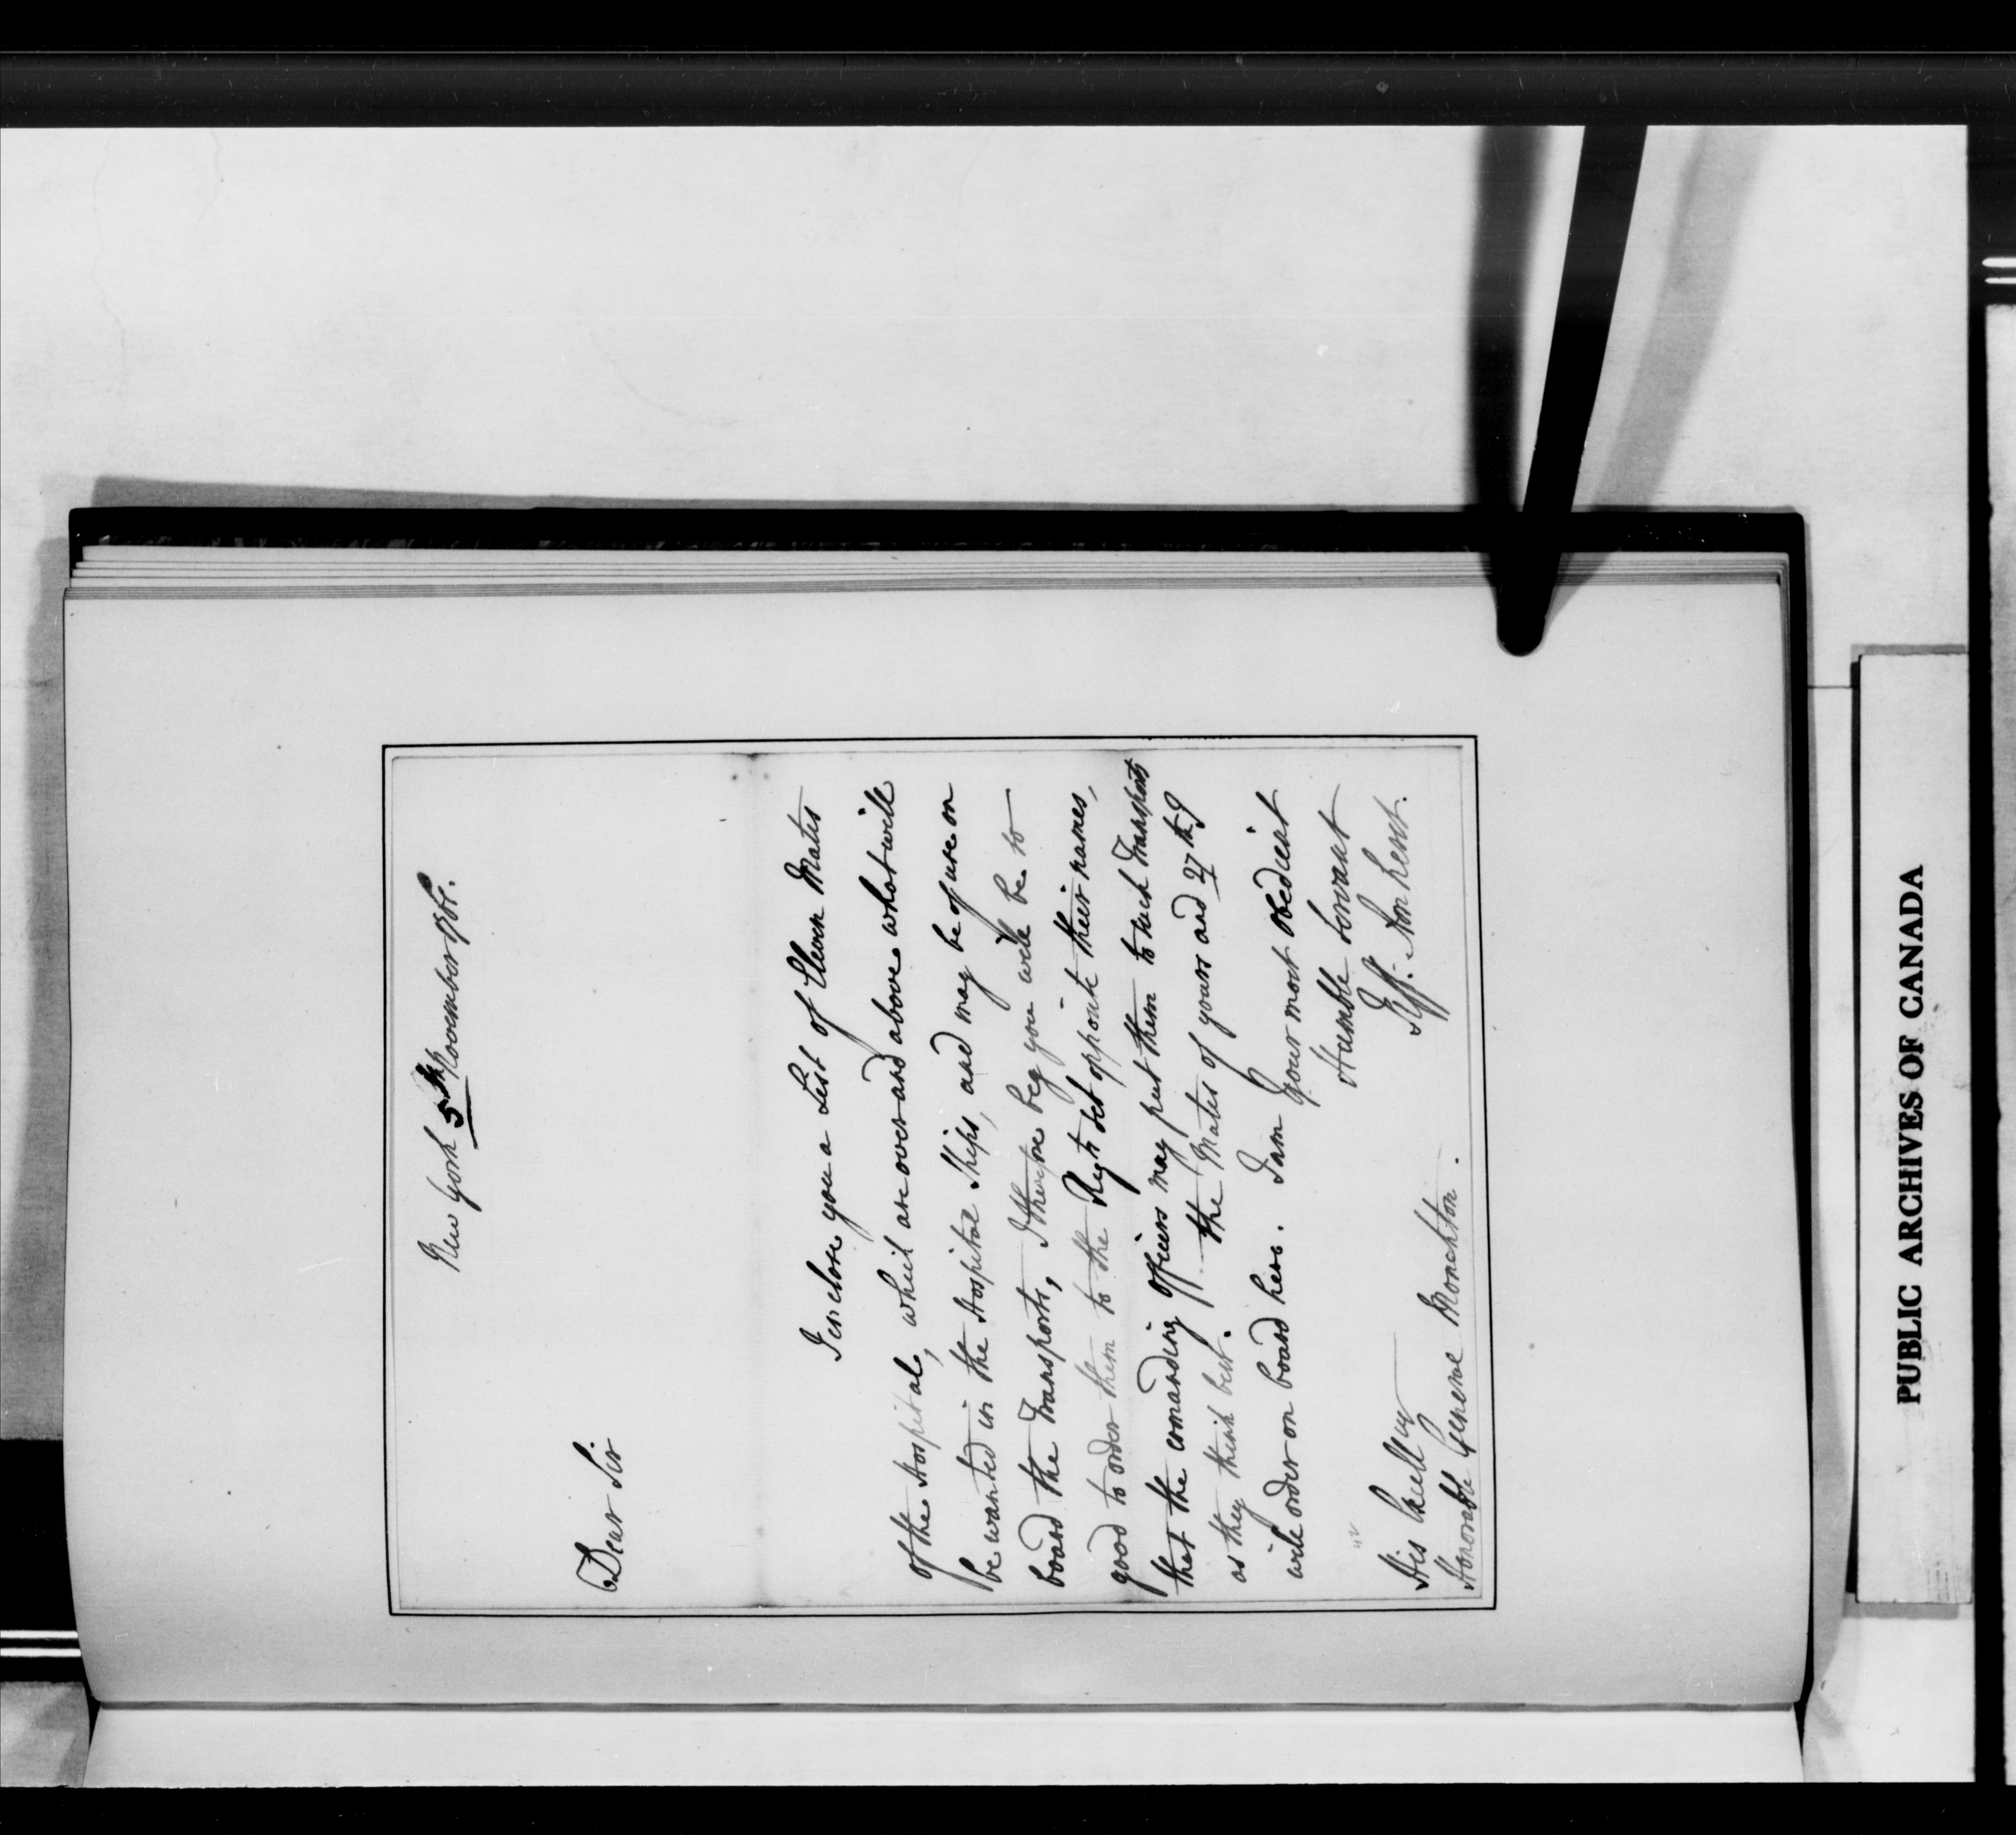 New York 5th November 1761.
Dear Sir
I enclose you a List of Eleven Mates
of the Hospital, which are over and above what will
be wanted in the Hospital Ships, and may be of use on
board the Transports, I therefore beg you will be so
good to order them to the Regts set opposite their names,
that the comanding officers may put them to such Transports
as they think best. the Mates of yours and 27th I
will order on board here. I am
your most obedient
Humble Servant
Jeff: Amherst.
His Excellcy
Honorable General Monckton.
PUBLIC ARCHIVES OF CANADA